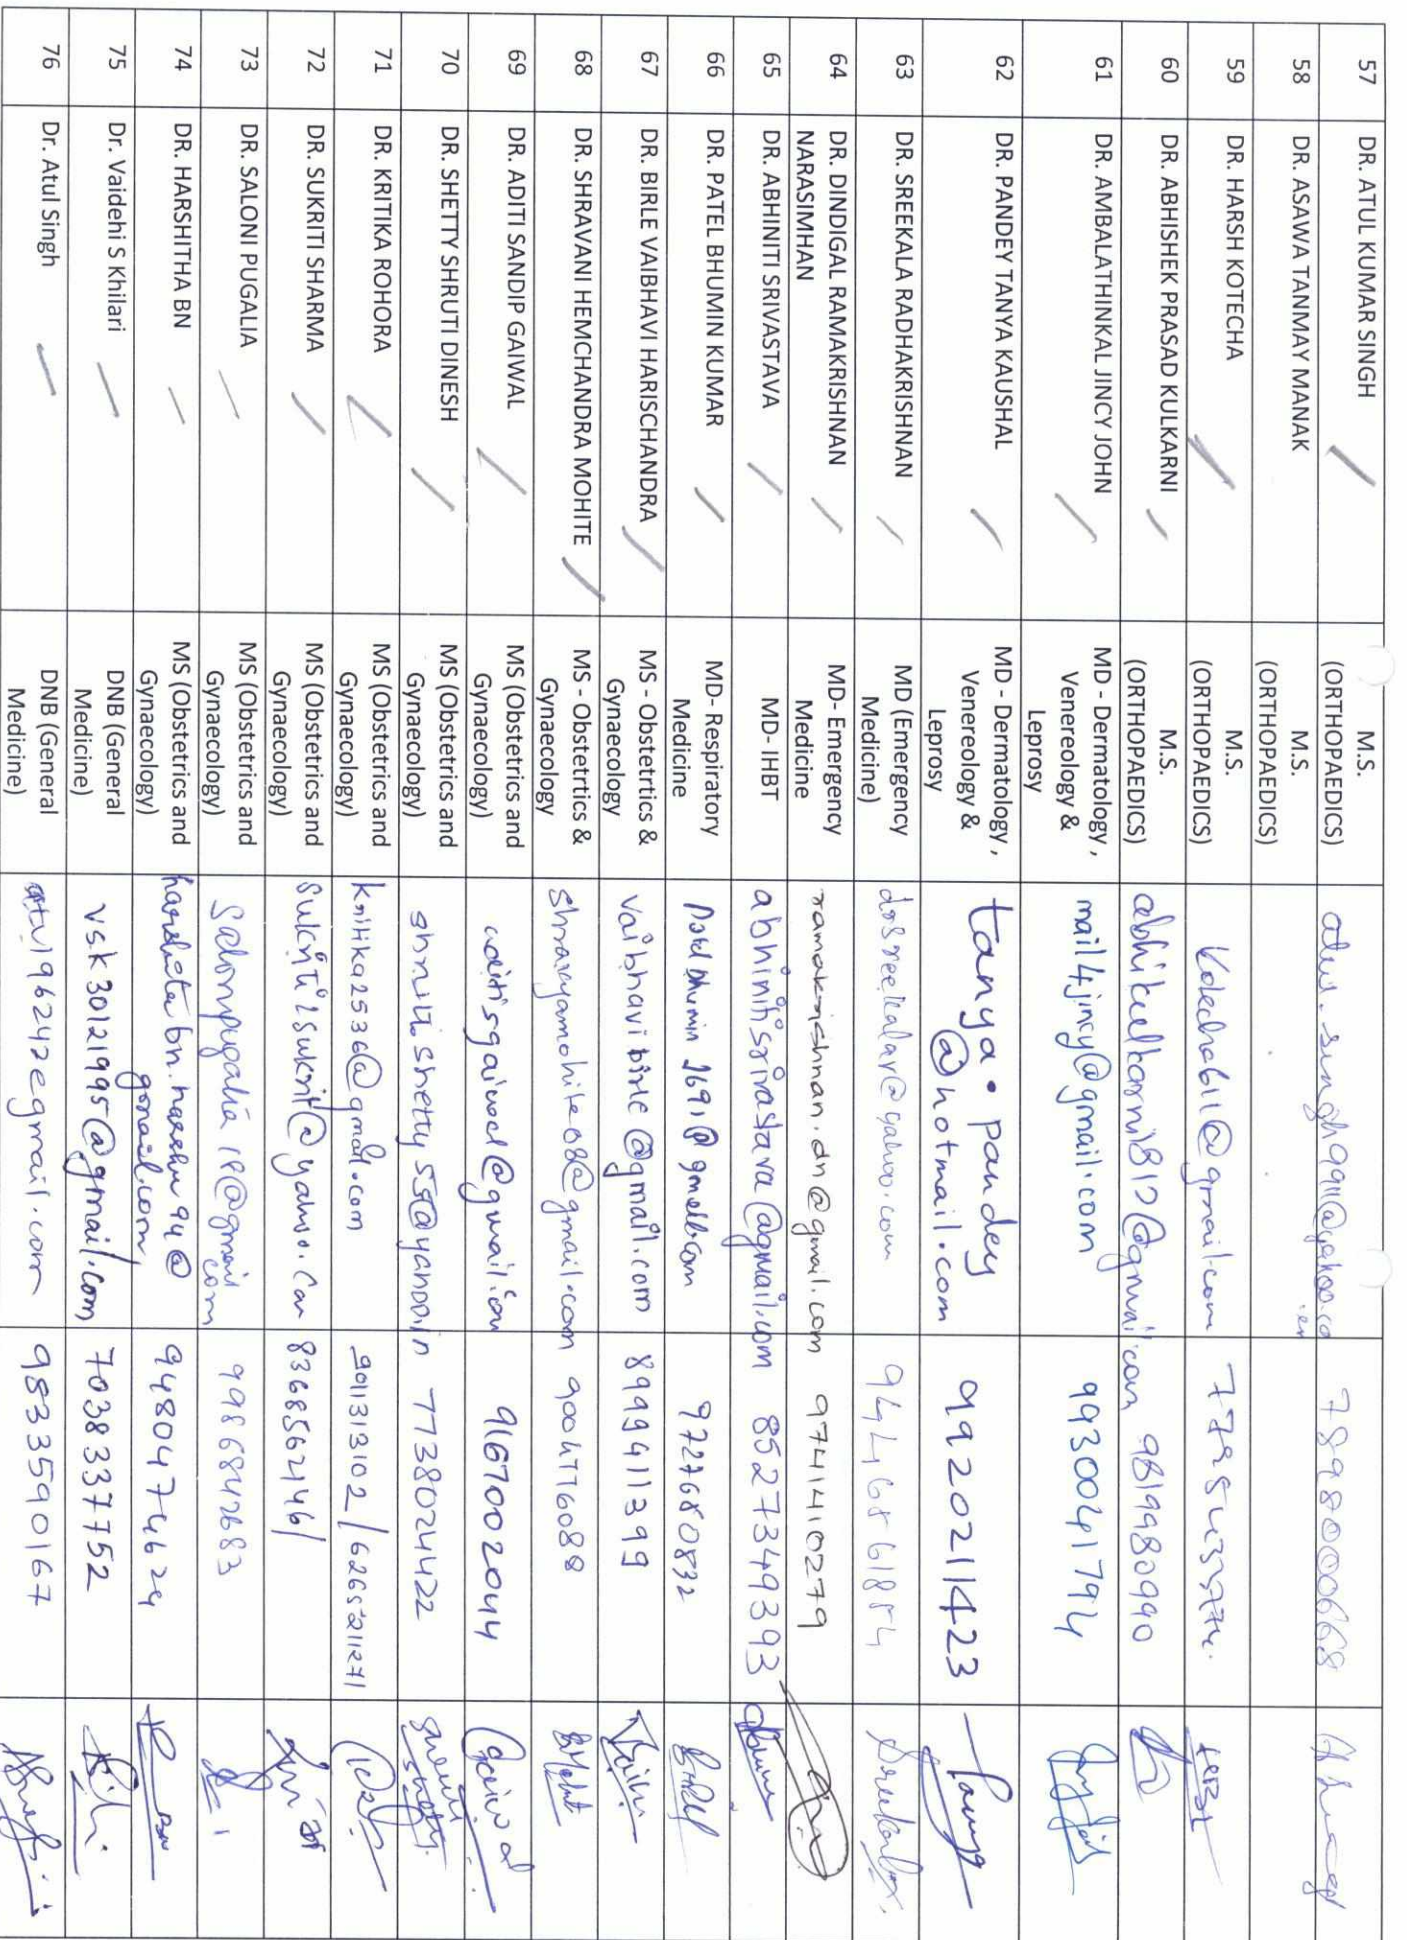 57 DR. ATUL KUMAR SINGH M.S.
(ORTHOPAEDICS) 7898000668
58 DR. ASAWA TANMAY MANAK M.S.
(ORTHOPAEDICS)
59 DR. HARSH KOTECHA M.S.
(ORTHOPAEDICS) kotecha611@gmail.com
60 DR. ABHISHEK PRASAD KULKARNI M.S.
(ORTHOPAEDICS) 9819980990
61 DR. AMBALATHINKAL JINCY JOHN MD - Dermatology ,
Venereology &
Leprosy mail4jincy@gmail.com 9930041794
62 DR. PANDEY TANYA KAUSHAL MD - Dermatology ,
Venereology &
Leprosy tanya.pandey
@hotmail.com 9920211423
63 DR. SREEKALA RADHAKRISHNAN MD (Emergency
Medicine) drsreekalar@yahoo.com
64 DR. DINDIGAL RAMAKRISHNAN
NARASIMHAN MD- Emergency
Medicine ramakrishnan.dn@gmail.com 9741410279
65 DR. ABHINITI SRIVASTAVA MD- IHBT abhinitisrivastava@gmail.com 8527349393
66 DR. PATEL BHUMIN KUMAR MD- Respiratory
Medicine 9727680832
67 DR. BIRLE VAIBHAVI HARISCHANDRA MS - Obstetrtics &
Gynaecology vaibhavibirle@gmail.com 8999411399
68 DR. SHRAVANI HEMCHANDRA MOHITE MS - Obstetrtics &
Gynaecology 9004776088
69 DR. ADITI SANDIP GAIWAL MS (Obstetrics and
Gynaecology) aditisgaiwal@gmail.com 9167002044
70 DR. SHETTY SHRUTI DINESH MS (Obstetrics and
Gynaecology) 7738024422
71 DR. KRITIKA ROHORA MS (Obstetrics and
Gynaecology) kritika2536@gmail.com 9011313102/6265211271
72 DR. SUKRITI SHARMA MS (Obstetrics and
Gynaecology) 8368562146
73 DR. SALONI PUGALIA MS (Obstetrics and
Gynaecology) 9986842683
74 DR. HARSHITHA BN MS (Obstetrics and
Gynaecology) 9480474624
75 Dr. Vaidehi S Khilari DNB (General
Medicine) vsk30121995@gmail.com 7038337752
76 Dr. Atul Singh DNB (General
Medicine) 9833590167